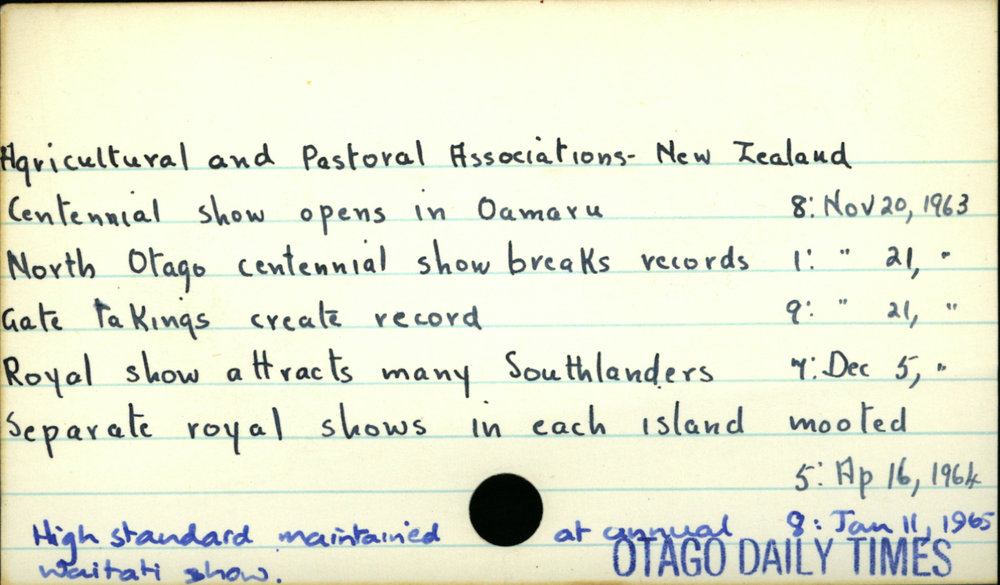 Agricultural and Pastoral Associations- New Zealand
Centennial show opens in Oamaru 8: Nov 20, 1963
North Otago centennial show breaks records 1: " 21, "
Gate Takings create record 9: " 21, "
Royal show attracts many Southlanders 7: Dec 5, "
Separate royal shows in each island mooted
5: Ap 16, 1964
High standard maintained at annual 9: Jan 11, 1965
Waitati show.
OTAGO DAILY TIMES